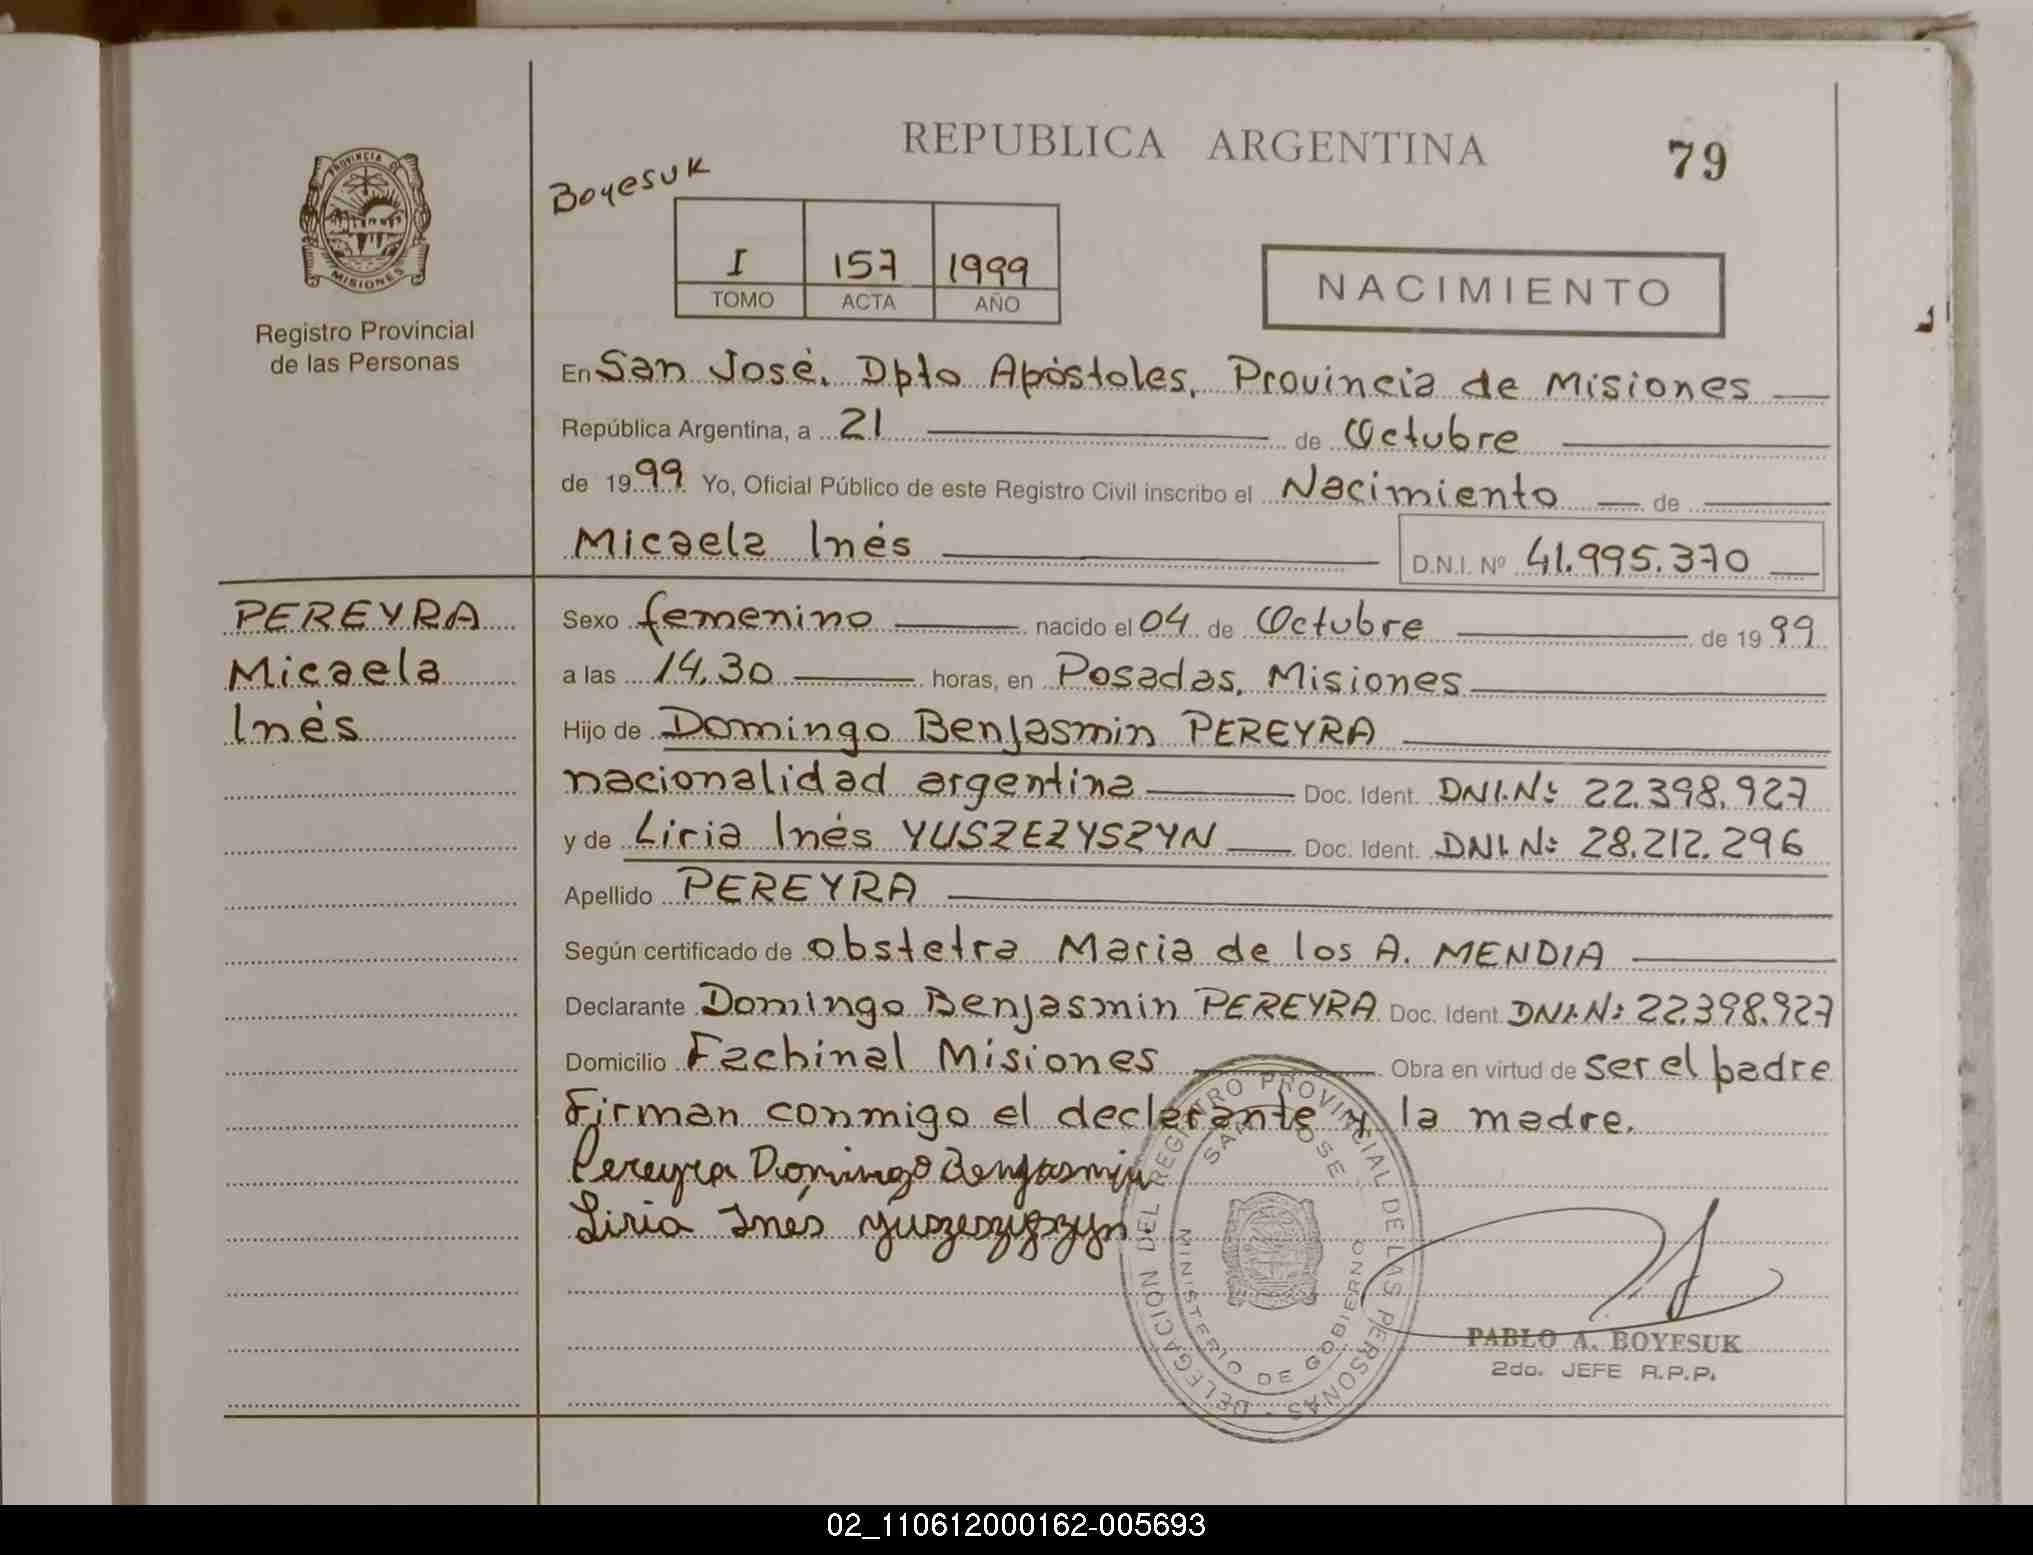 REPUBLICA ARGENTINA
79
Boyesuk
PROVINCIA DE
MISIONES
Registro Provincial
de las Personas
I 157 1999
TOMO ACTA AÑO
NACIMIENTO
En San José, Dpto Apóstoles, Provincia de Misiones
República Argentina, a 21 de Octubre
de 1999 Yo, Oficial Público de este Registro Civil inscribo el Nacimiento de
Micaela Inés D.N.I. Nº 41.995.370
PEREYRA
Micaela
Inés
Sexo femenino nacido el 04 de Octubre de 1999
a las 14,30 horas, en Posadas, Misiones
Hijo de Domingo Benjasmin PEREYRA
nacionalidad argentina Doc. Ident. DNI.Nº 22.398.927
y de Liria Inés YUSZEZYSZYN Doc. Ident. DNI.Nº 28.212.296
Apellido PEREYRA
Según certificado de obstetra Maria de los A. MENDIA
Declarante Domingo Benjasmin PEREYRA Doc. Ident. DNI.Nº 22.398.927
Domicilio Fachinal Misiones Obra en virtud de ser el padre
Firman conmigo el declarante y la madre.
Pereyra Domingo Benjasmin
Liria Ines Yuszeszyszyn
DELEGACION DEL REGISTRO PROVINCIAL DE LAS PERSONAS
SAN JOSE
MINISTERIO DE GOBIERNO
PABLO A. BOYESUK
2do. JEFE R.P.P.
02_110612000162-005693